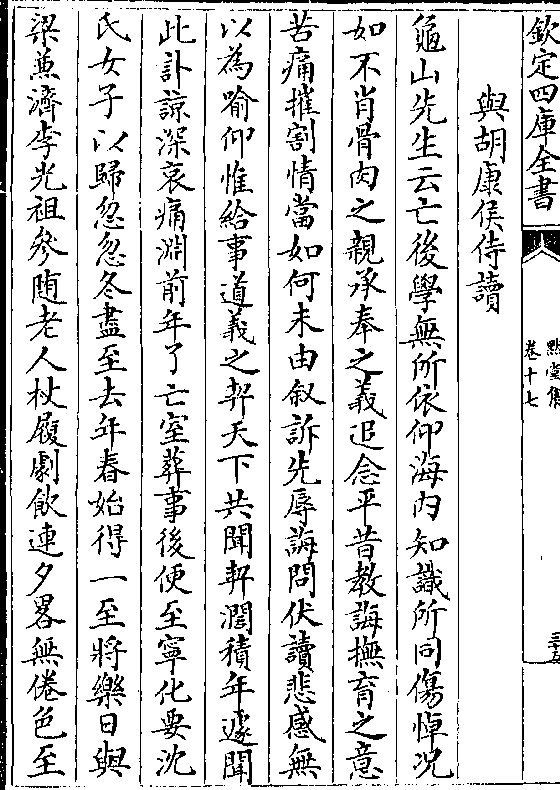 欽定四庫全書
卷十七
與胡康侯侍讀
龜山先生云亡後學無所依仰海内知識所同傷悼况
如不肖骨肉之親承奉之義追念平昔教誨撫育之意
苦痛摧割情當如何未由敘訴先辱誨問伏讀悲感無
以為喻仰惟給事道義之契天下共聞契濶積年遽聞
此訃諒深哀痛淵前年了亡室葬事後便至寧化要沈
氏女子以歸忽忽冬盡至去年春始得一至將樂日與
梁兼濟李光祖參随老人杖履劇飲連夕畧無倦色至